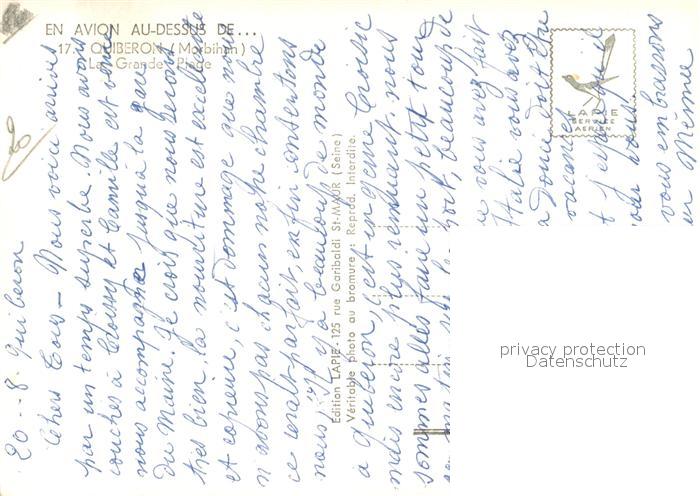 EN AVION AU-DESSUS DE...
17. - QUIBERON (Morbihan)
La Grande Plage
20 - 8. Quiberon
Chers Tous - Nous voici arrivés
par un temps superbe Nous avons
couchés à Croissy et Camille est venu
nous accompagner jusqu'à la gare
du Maine. Je crois que nous serons
très bien, la nourriture est excellente
et copieuse, c'est dommage que nous
n'avons pas chacun notre chambre
ce serait parfait, enfin contentons
nous, il y a beaucoup de monde
à Quiberon, c'est un genre Croisic
mais encore plus remuant. nous
sommes allés faire un petit tour
beaucoup de
vous avez fait
Italie vous avez
doit être
vacances
t j'espère que
pour vous
vous embrassons
Mémée
Edition LAPIE - 125 rue Garibaldi St-MAUR (Seine)
Véritable photo au bromure : Reprod. Interdite.
LAPIE
SERVICE
AERIEN
privacy protection
Datenschutz